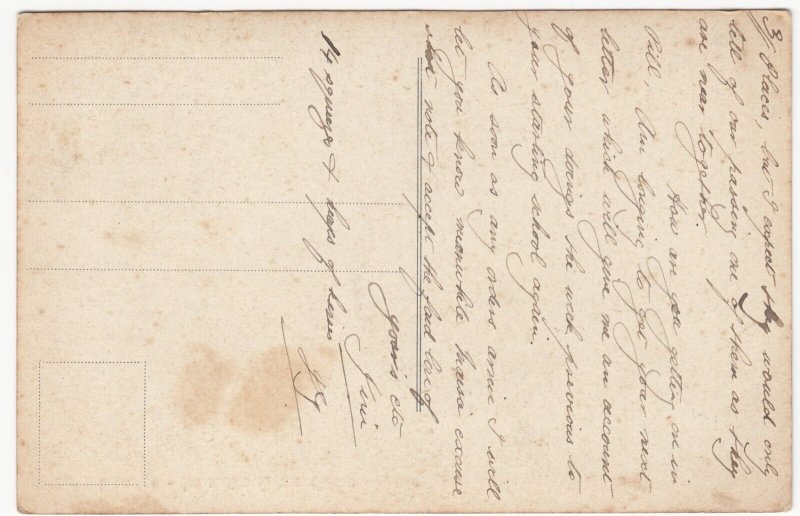 3/ Places, but I expect they would only
tell of our passing one of them as they
are near together.
How are you getting on in
Bill, Am longing to get your next
letter which will give me an account
of your doings the week previous to
your starting school again.
As soon as any orders arrive I will
let you know meanwhile excuse
short note & accept the fond love of
yours etc
14 squeeze & kisses